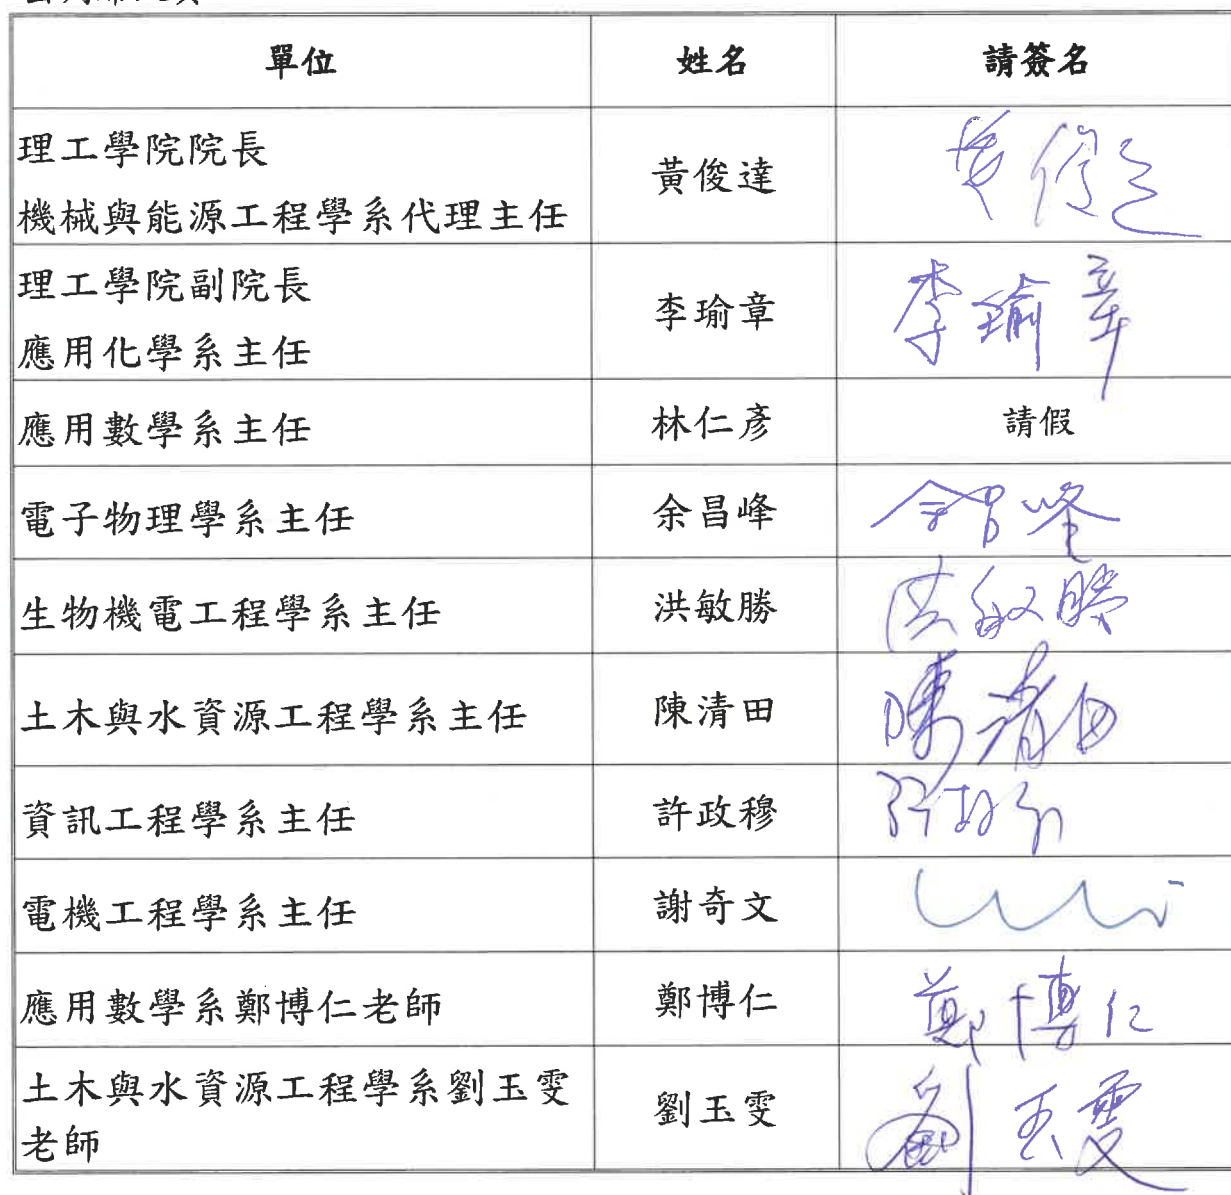 單位 姓名 請簽名
理工學院院長
機械與能源工程學系代理主任 黃俊達
理工學院副院長
應用化學系主任 李瑜章 李瑜章
應用數學系主任 林仁彥 請假
電子物理學系主任 余昌峰 余昌峰
生物機電工程學系主任 洪敏勝 洪敏勝
土木與水資源工程學系主任 陳清田 陳清田
資訊工程學系主任 許政穆
電機工程學系主任 謝奇文
應用數學系鄭博仁老師 鄭博仁 鄭博仁
土木與水資源工程學系劉玉雯
老師 劉玉雯 劉玉雯